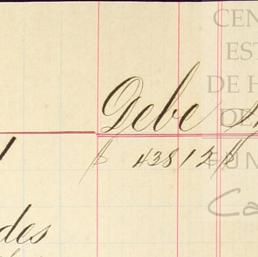 Debe
$ 438 12 $
des
CEN
EST
DE H
DE
FUN
Ca